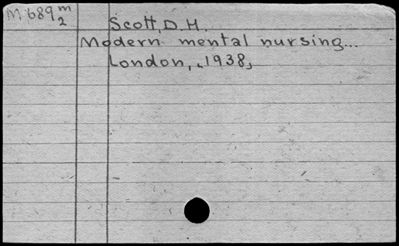 M 689 m
2
Scott, D. H.
Modern mental nursing...
London, 1938,